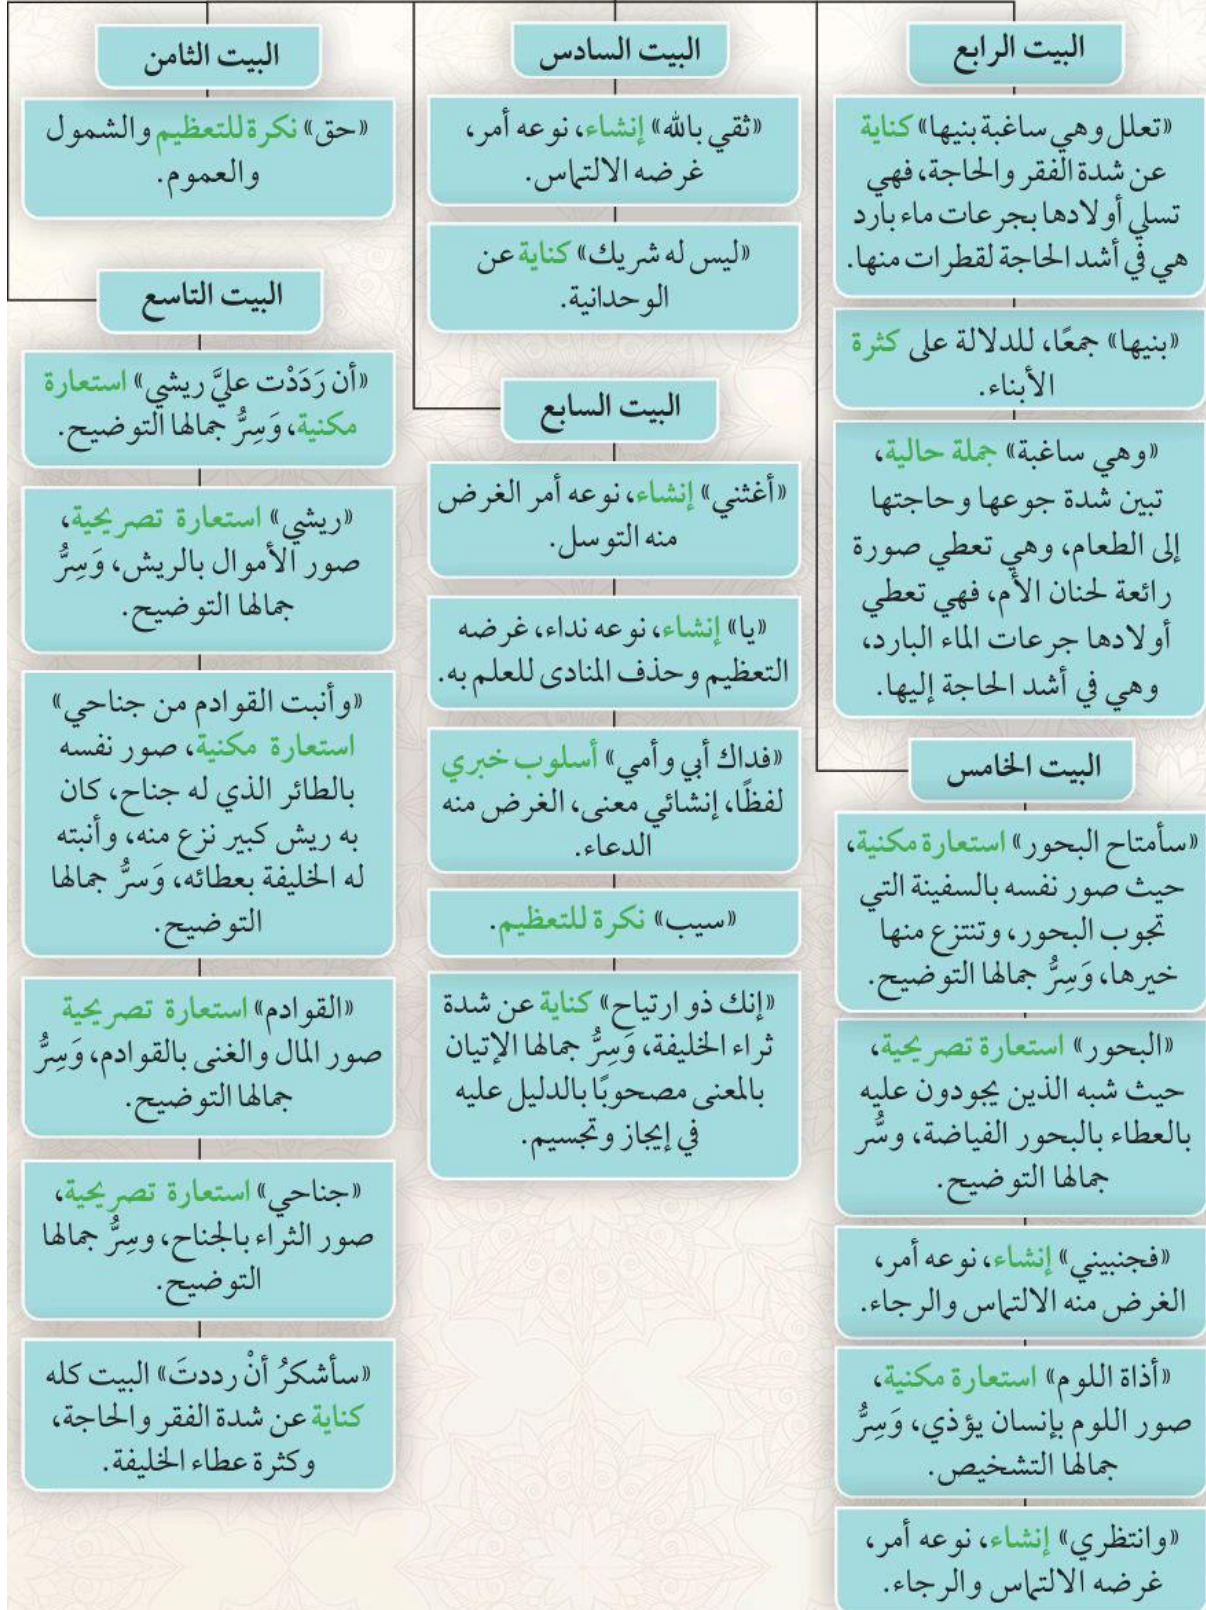 البيت الرابع
«تعلل وهي ساغبة بنيها» كناية
عن شدة الفقر والحاجة، فهي
تسلي أولادها بجرعات ماء بارد
هي في أشد الحاجة لقطرات منها.
«بنيها» جمعًا، للدلالة على كثرة
الأبناء.
«وهي ساغبة» جملة حالية،
تبين شدة جوعها وحاجتها
إلى الطعام، وهي تعطي صورة
رائعة لحنان الأم، فهي تعطي
أولادها جرعات الماء البارد،
وهي في أشد الحاجة إليها.
البيت الخامس
«سأمتاح البحور» استعارة مكنية،
حيث صور نفسه بالسفينة التي
تجوب البحور، وتنتزع منها
خيرها، وَسِرُّ جمالها التوضيح.
«البحور» استعارة تصريحية،
حيث شبه الذين يجودون عليه
بالعطاء بالبحور الفياضة، وسُّر
جمالها التوضيح.
«فجنبيني» إنشاء، نوعه أمر،
الغرض منه الالتماس والرجاء.
«أذاة اللوم» استعارة مكنية،
صور اللوم بإنسان يؤذي، وَسِرُّ
جمالها التشخيص.
«وانتظري» إنشاء، نوعه أمر،
غرضه الالتماس والرجاء.
البيت السادس
«ثقي بالله» إنشاء، نوعه أمر،
غرضه الالتماس.
«ليس له شريك» كناية عن
الوحدانية.
البيت السابع
«أغثني» إنشاء، نوعه أمر الغرض
منه التوسل.
«يا» إنشاء، نوعه نداء، غرضه
التعظيم وحذف المنادى للعلم به.
«فداك أبي وأمي» أسلوب خبري
لفظًا، إنشائي معنى، الغرض منه
الدعاء.
«سيب» نكرة للتعظيم.
«إنك ذو ارتياح» كناية عن شدة
ثراء الخليفة، وَسِرُّ جمالها الإتيان
بالمعنى مصحوبًا بالدليل عليه
في إيجاز وتجسيم.
البيت الثامن
«حق» نكرة للتعظيم والشمول
والعموم.
البيت التاسع
«أن رَدَدْت عليَّ ريشي» استعارة
مكنية، وَسِرُّ جمالها التوضيح.
«ريشي» استعارة تصريحية،
صور الأموال بالريش، وَسِرُّ
جمالها التوضيح.
«وأنبت القوادم من جناحي»
استعارة مكنية، صور نفسه
بالطائر الذي له جناح، كان
به ريش كبير نزع منه، وأنبته
له الخليفة بعطائه، وَسرُّ جمالها
التوضيح.
«القوادم» استعارة تصريحية
صور المال والغنى بالقوادم، وَسِرُّ
جمالها التوضيح.
«جناحي» استعارة تصريحية،
صور الثراء بالجناح، وسِرُّ جمالها
التوضيح.
«سأشكرُ أنْ رددتَ» البيت كله
كناية عن شدة الفقر والحاجة،
وكثرة عطاء الخليفة.